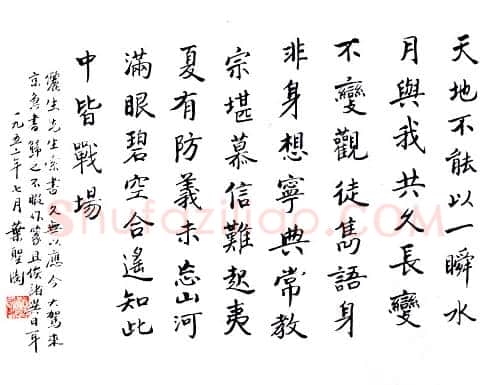 天地不能以一瞬水
月與我共久長變
不變觀徒雋語身
非身想寧典常教
宗堪慕信難起夷
夏有防義未忘山河
滿眼碧空合遙知此
中皆戰場
儷生先生索書久無以應今大駕來
京急書歸之不暇作篆且俟諸異日耳
一九五一年七月葉聖陶
Shufaziliao.COM